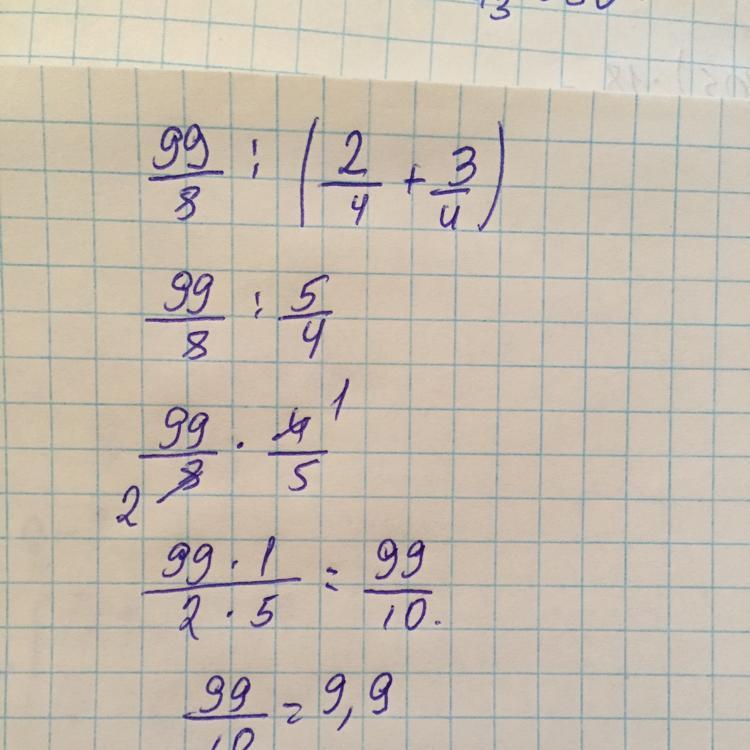 99/8 : (2/4 + 3/4)
99/8 : 5/4
99/8 · 4/5 1
2
99 · 1 / 2 · 5 = 99/10.
99/10 = 9,9